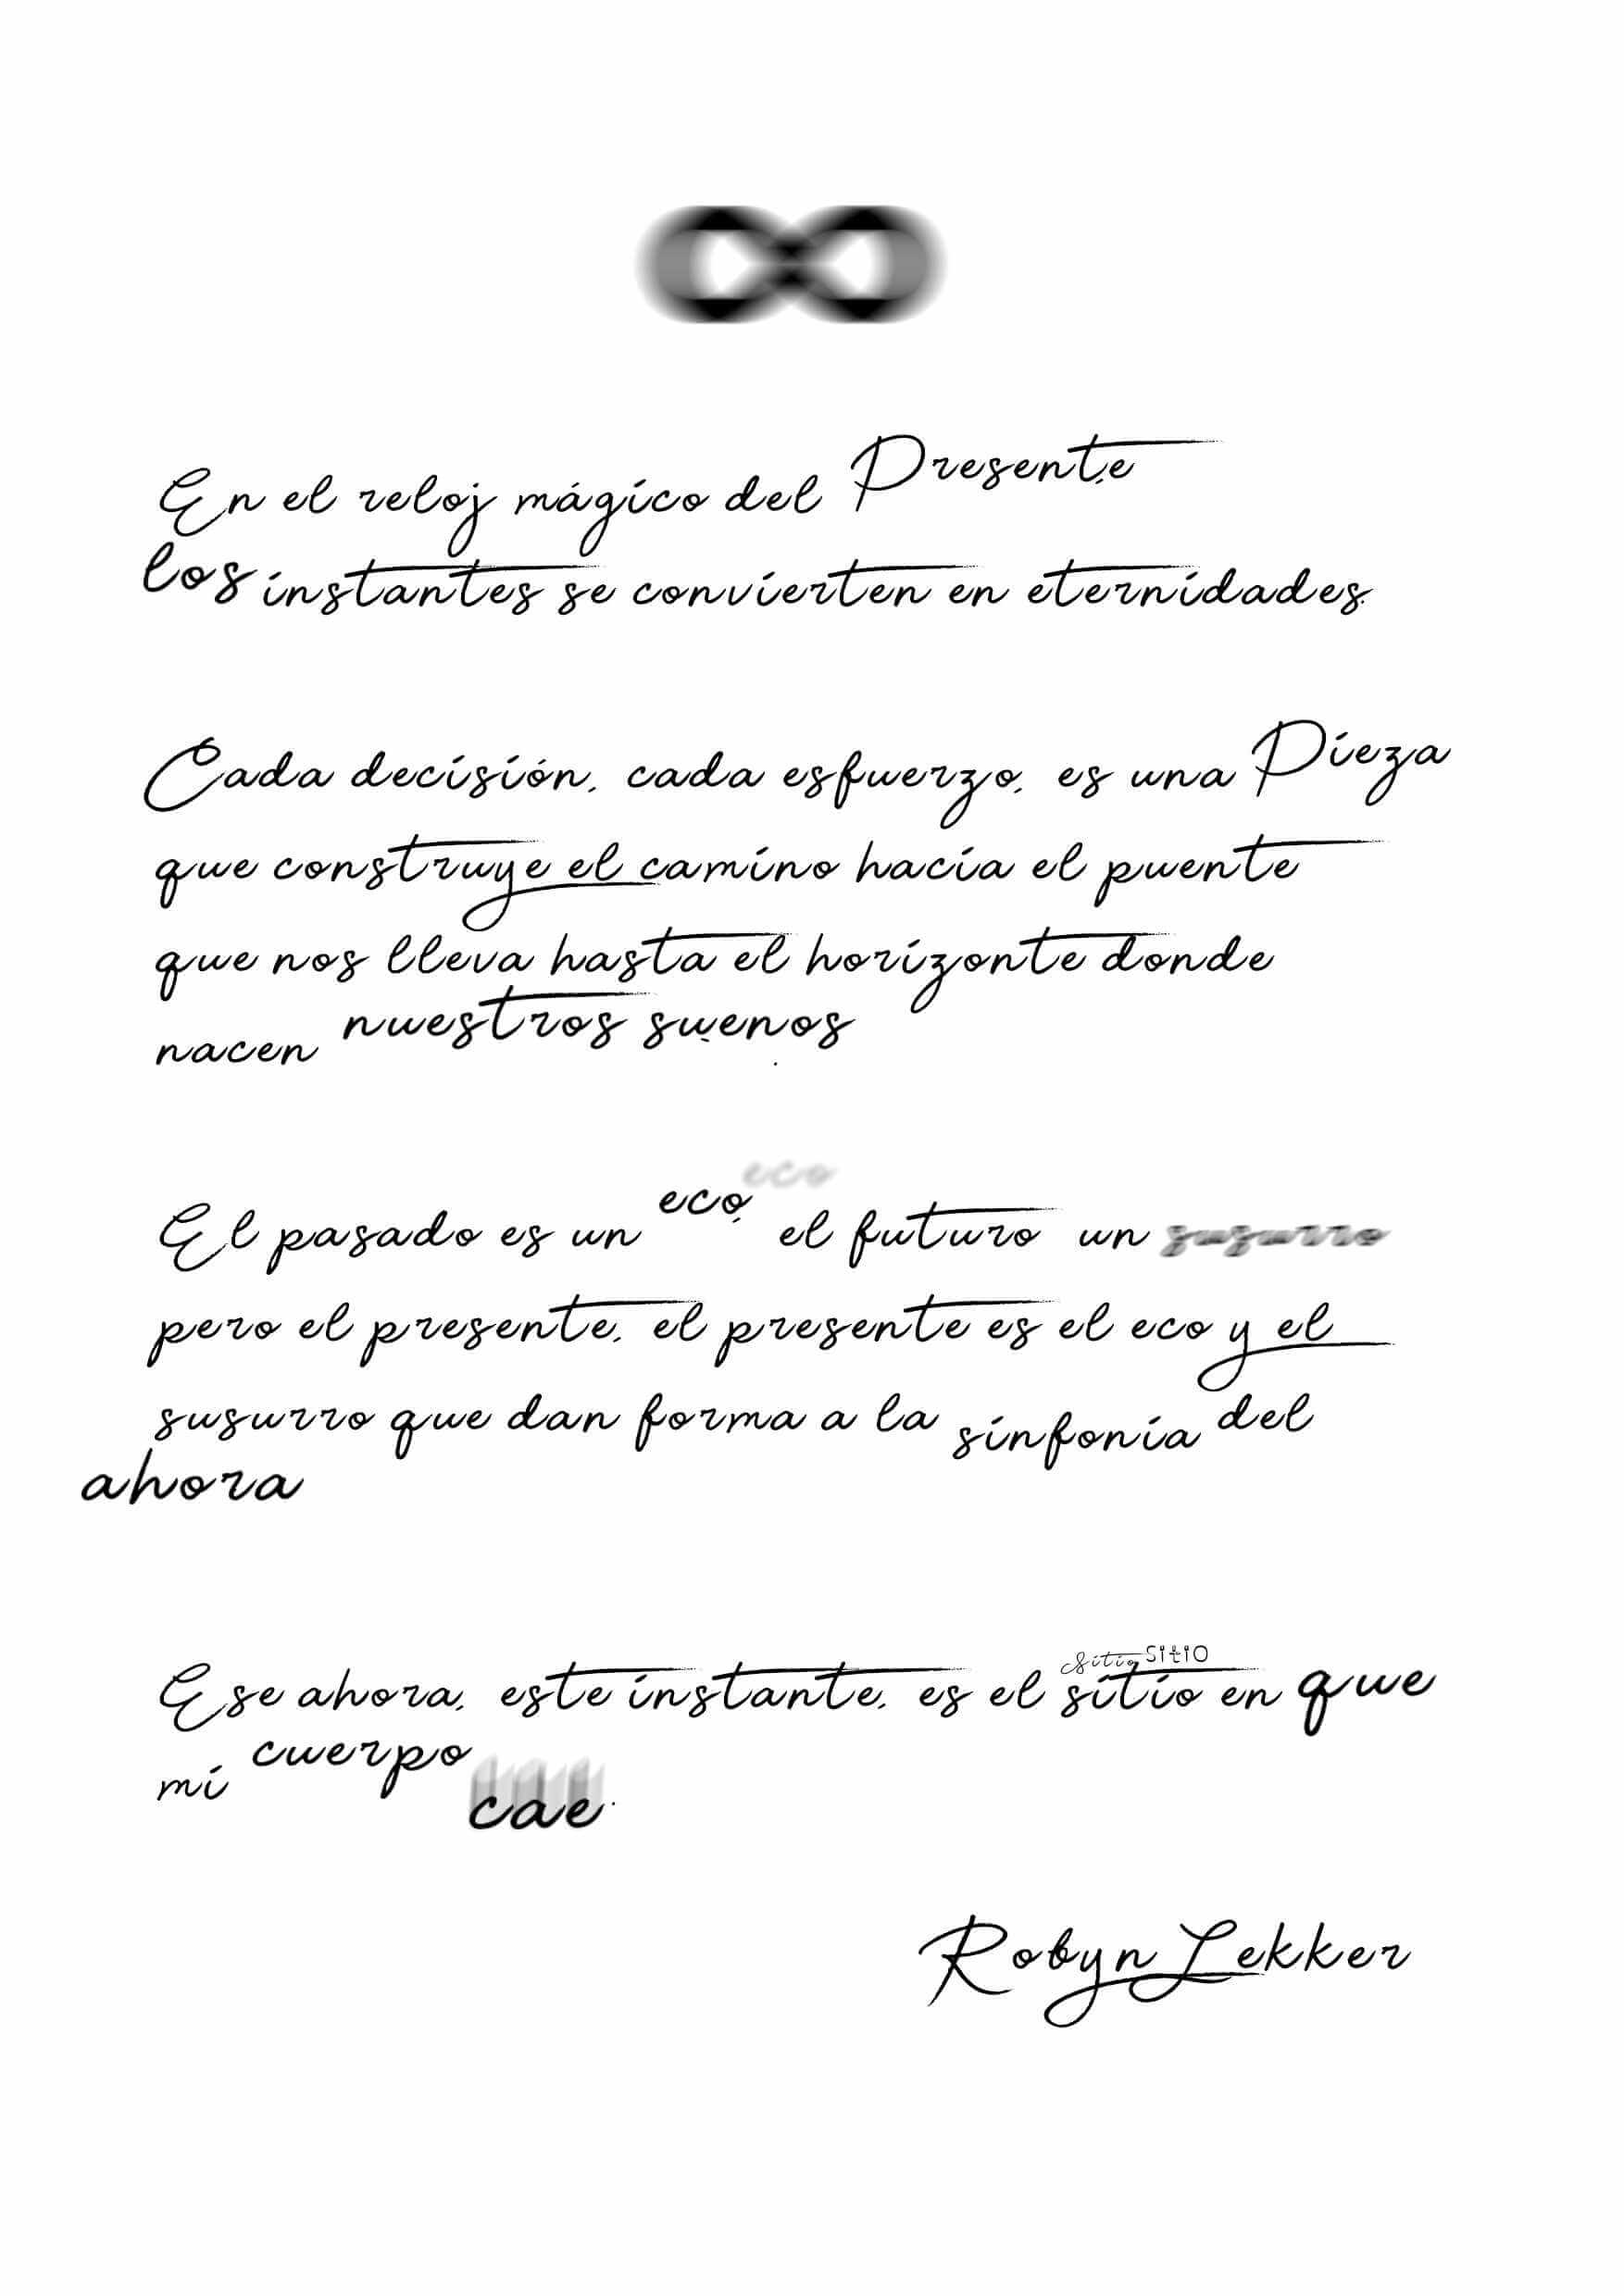 ∞
En el reloj mágico del Presente,
los instantes se convierten en eternidades.
Cada decisión, cada esfuerzo, es una Pieza
que construye el camino hacia el puente
que nos lleva hasta el horizonte donde
nacen nuestros suenos.
El pasado es un eco, eco el futuro un susurro
pero el presente, el presente es el eco y el
susurro que dan forma a la sinfonía del
ahora
Ese ahora, este instante, es el sitio sitio sitio en que
mi cuerpo cae.
Robyn Lekker